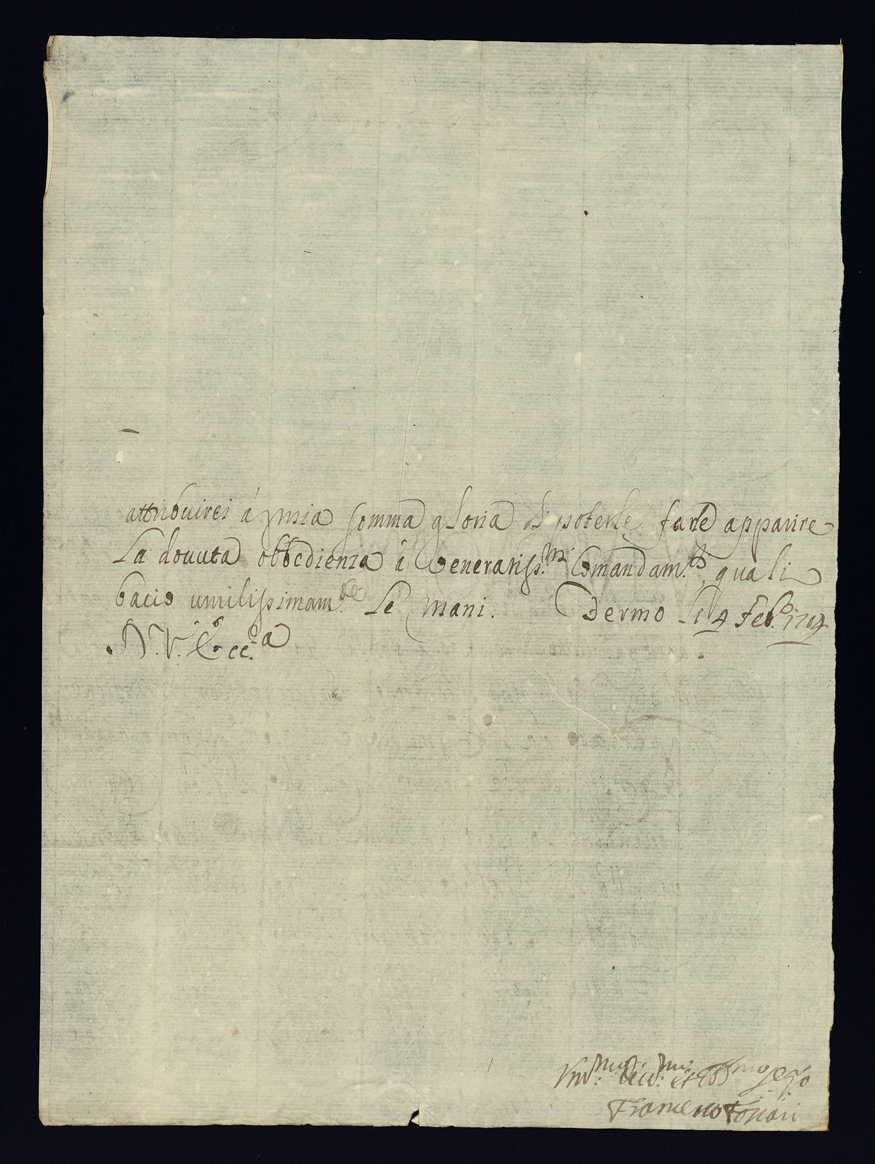 attribuirei á mia somma gloria di poterle fare apparire
La douuta obbedienza á Veneratiss.mi Comandam.ti, quali
bacio umilissimam.te le mani. Dermo li 4 Feb.o
D. V. Ecc.a
Vm.mo Deu.mo et Obb.mo
Francesco